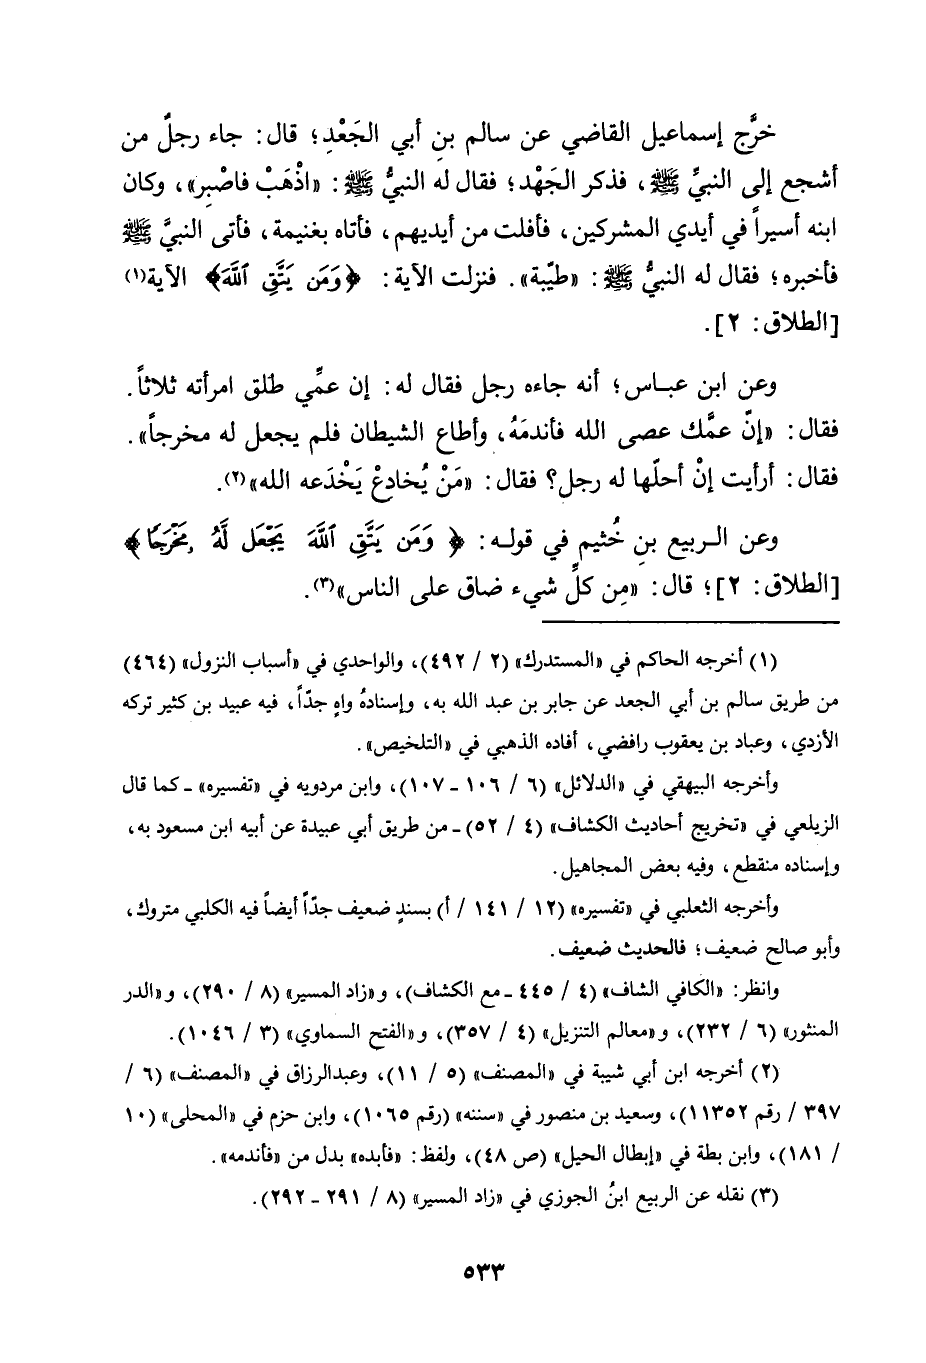 خرَّج إسماعيل القاضي عن سالم بنِ أبي الجَعْدِ؛ قال: جاء رجلٌ من
أشجع إلى النبيِّ ﷺ، فذكر الجَهْد؛ فقال له النبيُّ ﷺ: «اذْهَبْ فاصْبِر»، وكان
ابنه أسيراً في أيدي المشركين، فأفلت من أيديهم، فأتاه بغنيمة، فأتى النبيَّ ﷺ
فأخبره؛ فقال له النبيُّ ﷺ: «طيِّبة». فنزلت الآية: ﴿وَمَن يَتَّقِ ٱللَّهَ﴾ الآية(١)
[الطلاق: ٢].
وعن ابن عبـاس؛ أنه جاءه رجل فقال له: إن عمِّي طلق امرأته ثلاثاً.
فقال: «إنّ عمَّك عصى الله فأندمَهُ، وأطاع الشيطان فلم يجعل له مخرجاً».
فقال: أرأيت إنْ أحلّها له رجل؟ فقال: «مَنْ يُخادِعْ يَخْدَعه الله»(٢).
وعن الـربيع بنِ خُثيم في قولـه: ﴿وَمَن يَتَّقِ ٱللَّهَ يَجْعَل لَّهُۥ مَخْرَجًا﴾
[الطلاق: ٢]؛ قال: «مِن كلِّ شيء ضاق على الناس»(٣).
(١) أخرجه الحاكم في «المستدرك» (٢ / ٤٩٢)، والواحدي في «أسباب النزول» (٤٦٤)
من طريق سالم بن أبي الجعد عن جابر بن عبد الله به، وإسنادهُ واهٍ جدّاً، فيه عبيد بن كثير تركه
الأزدي، وعباد بن يعقوب رافضي، أفاده الذهبي في «التلخيص».
وأخرجه البيهقي في «الدلائل» (٦ / ١٠٦ - ١٠٧)، وابن مردويه في «تفسيره» - كما قال
الزيلعي في «تخريج أحاديث الكشاف» (٤ / ٥٢) - من طريق أبي عبيدة عن أبيه ابن مسعود به،
وإسناده منقطع، وفيه بعض المجاهيل.
وأخرجه الثعلبي في «تفسيره» (١٢ / ١٤١ / أ) بسندٍ ضعيف جدّاً أيضاً فيه الكلبي متروك،
وأبو صالح ضعيف؛ فالحديث ضعيف.
وانظر: «الكافي الشاف» (٤ / ٤٤٥ - مع الكشاف)، و«زاد المسير» (٨ / ٢٩٠)، و«الدر
المنثور» (٦ / ٢٣٢)، و«معالم التنزيل» (٤ / ٣٥٧)، و«الفتح السماوي» (٣ / ١٠٤٦).
(٢) أخرجه ابن أبي شيبة في «المصنف» (٥ / ١١)، وعبدالرزاق في «المصنف» (٦ /
٣٩٧ / رقم ١١٣٥٢)، وسعيد بن منصور في «سننه» (رقم ١٠٦٥)، وابن حزم في «المحلى» (١٠
/ ١٨١)، وابن بطة في «إبطال الحيل» (ص ٤٨)، ولفظ: «فأبده» بدل من «فأندمه».
(٣) نقله عن الربيع ابنُ الجوزي في «زاد المسير» (٨ / ٢٩١ - ٢٩٢).
٥٣٣